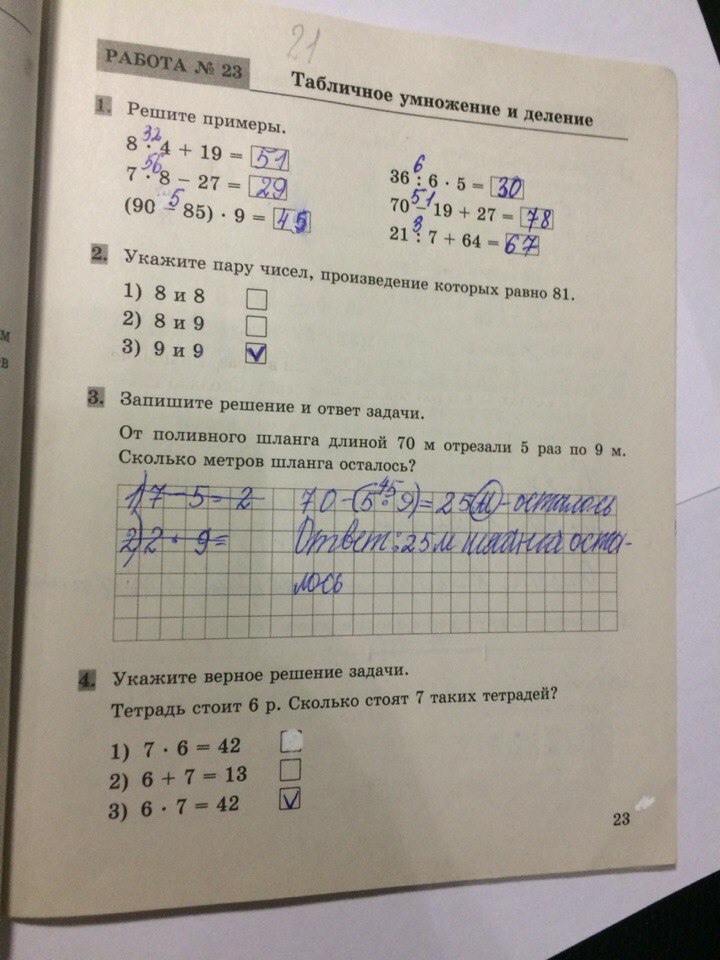 21
РАБОТА № 23
Табличное умножение и деление
1. Решите примеры.
32
8 · 4 + 19 = 51
56
7 · 8 − 27 = 29
5
(90 − 85) · 9 = 45
6
36 : 6 · 5 = 30
51
70 − 19 + 27 = 78
3
21 : 7 + 64 = 67
2. Укажите пару чисел, произведение которых равно 81.
1) 8 и 8
2) 8 и 9
3) 9 и 9 ✓
3. Запишите решение и ответ задачи.
От поливного шланга длиной 70 м отрезали 5 раз по 9 м.
Сколько метров шланга осталось?
1) 7 − 5 = 2
2) 2 · 9 =
45
70 − (5 · 9) = 25 (м) - осталось
Ответ: 25 м шланга оста-
лось
4. Укажите верное решение задачи.
Тетрадь стоит 6 р. Сколько стоят 7 таких тетрадей?
1) 7 · 6 = 42
2) 6 + 7 = 13
3) 6 · 7 = 42 ✓
23